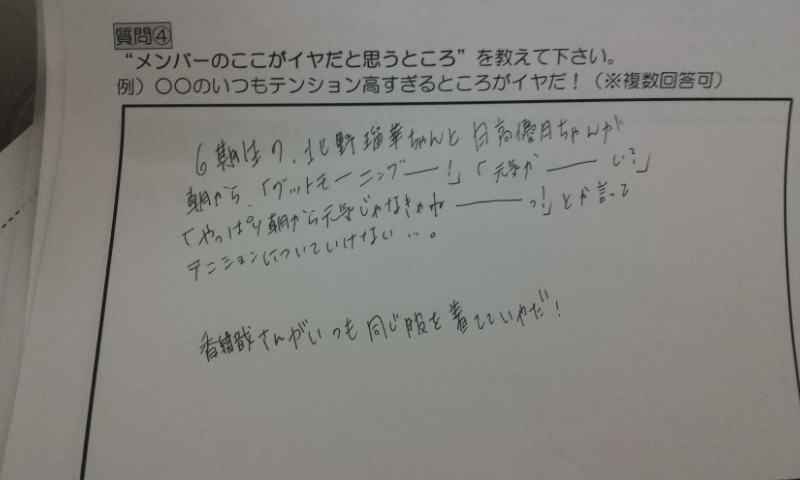 質問④
“メンバーのここがイヤだと思うところ”を教えて下さい。
例）○○のいつもテンション高すぎるところがイヤだ！（※複数回答可）
6期生の、北野瑠華ちゃんと日高優月ちゃんが
朝から、「グットモーニングー！」「元気かーーい？」
「やっぱり朝から元気じゃなきゃねーーーっ！」とか言って
テンションについていけない…。
香織さんがいつも同じ服を着てていやだ！